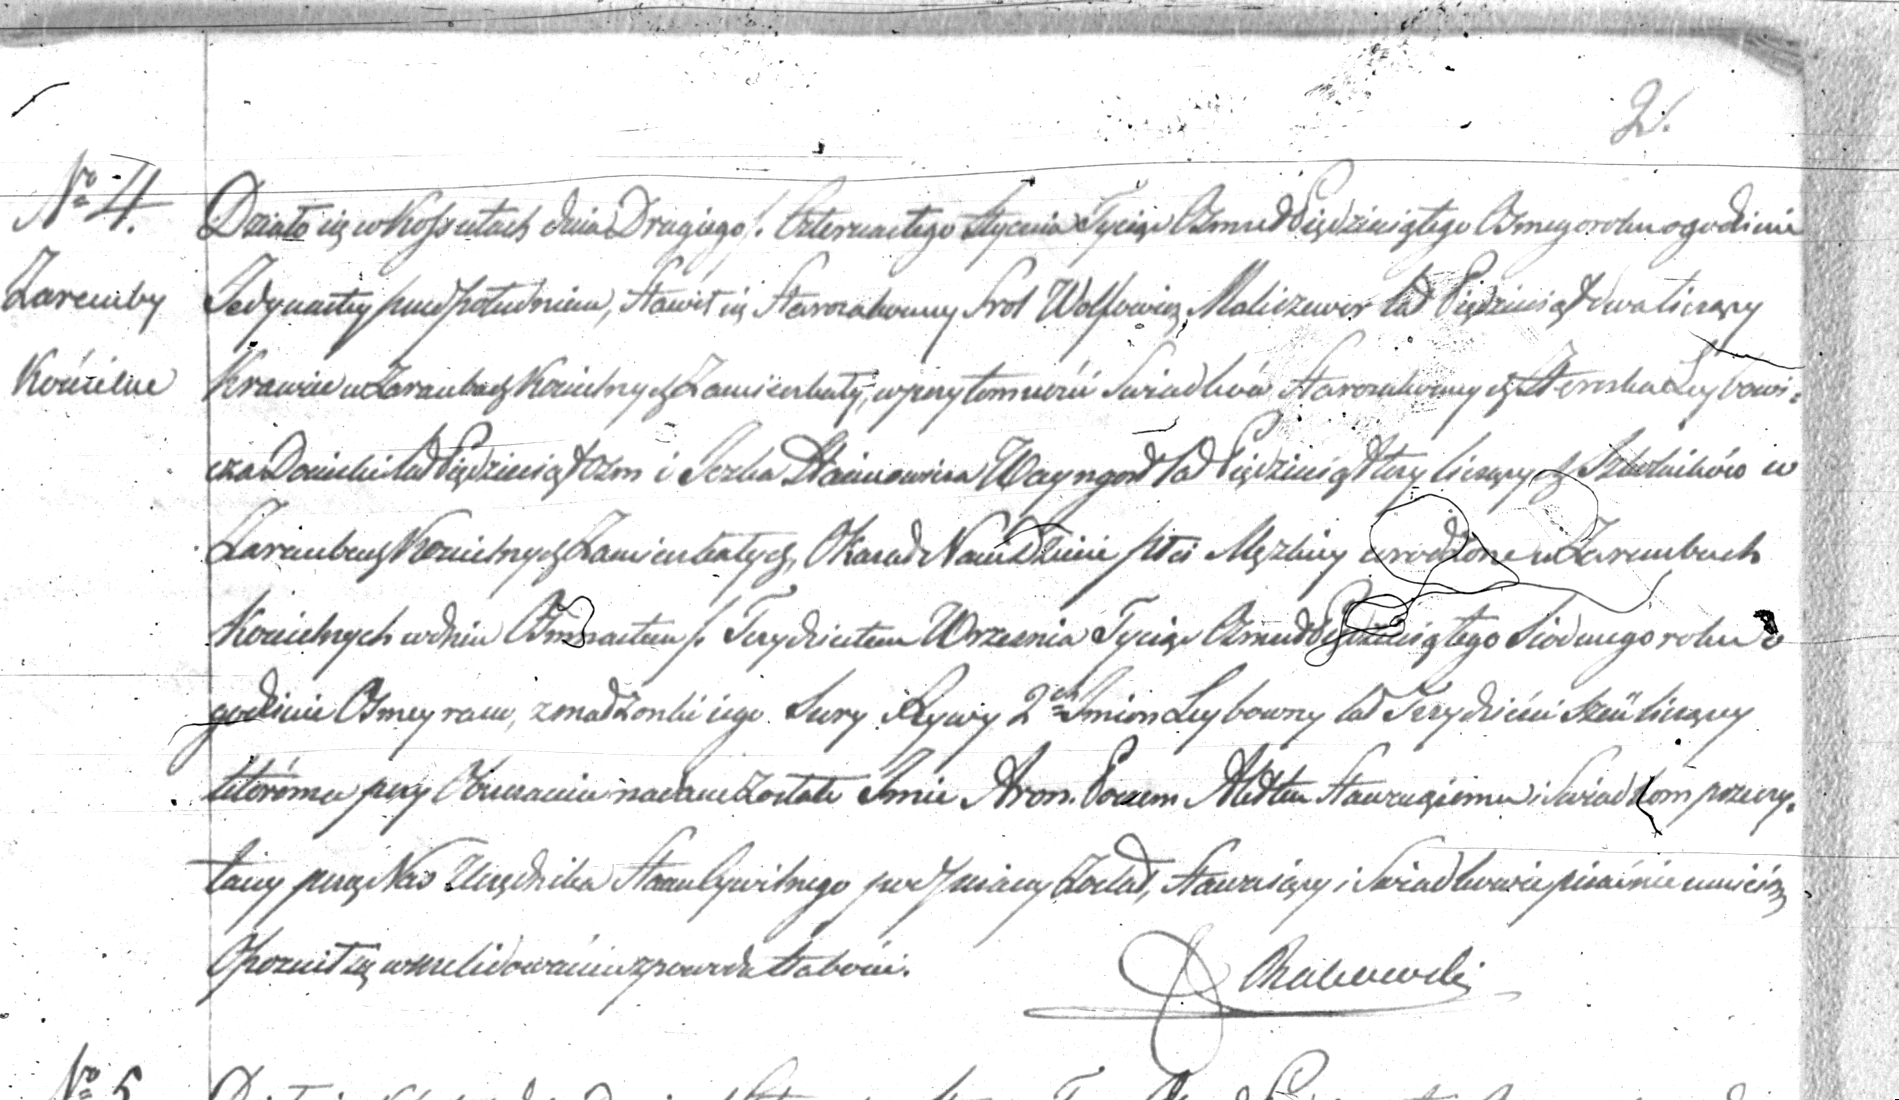 2.
No 4.
Zaremby
Kościelne
Działo się w Koszutach dnia Drugiego/. Czternastego Stycznia Tysiąc Ośmset Piędziesiątego Osmego roku o godzinie
Jedynastej przed południem, Stawił się Starozakonny Srol Wolfowicz Maliczewor lat Piędziesiąt dwa liczący
Krawiec w Zarembach Kościelnych Zamieszkały, w przytomności Swiadków Starozakonnych Herszka Leybowi=
cza lat Piędziesiąt Ośm i Joska Wayngort lat Piędziesiąt trzy liczących Szkolników w
Zarembach Kościelnych Zamieszkałych, Okazał Nam Dziecie płci Męzkiey urodzone w Zarembach
Kościelnych w dniu Osmnastem /. Trzydziestem Września Tysiąc Ośmset Piędziesiątego Siodmego roku o
godzinie Osmey rano, z małżonki iego Sury Rywy 2ch Imion Leybowny lat Trzydzieści sześć liczący
któremu przy Obrzezaniu nadane zostało Imie Aron. Poczem Akt ten Stawaiącemu i Swiadkom przeczy=
tany przez Nas Urzędnika Stanu Cywilnego podpisany Został, Stawaiący i Swiadkowie pisać nie umieią
Opoznił się w meldowaniu z powodu słabości.
No 5